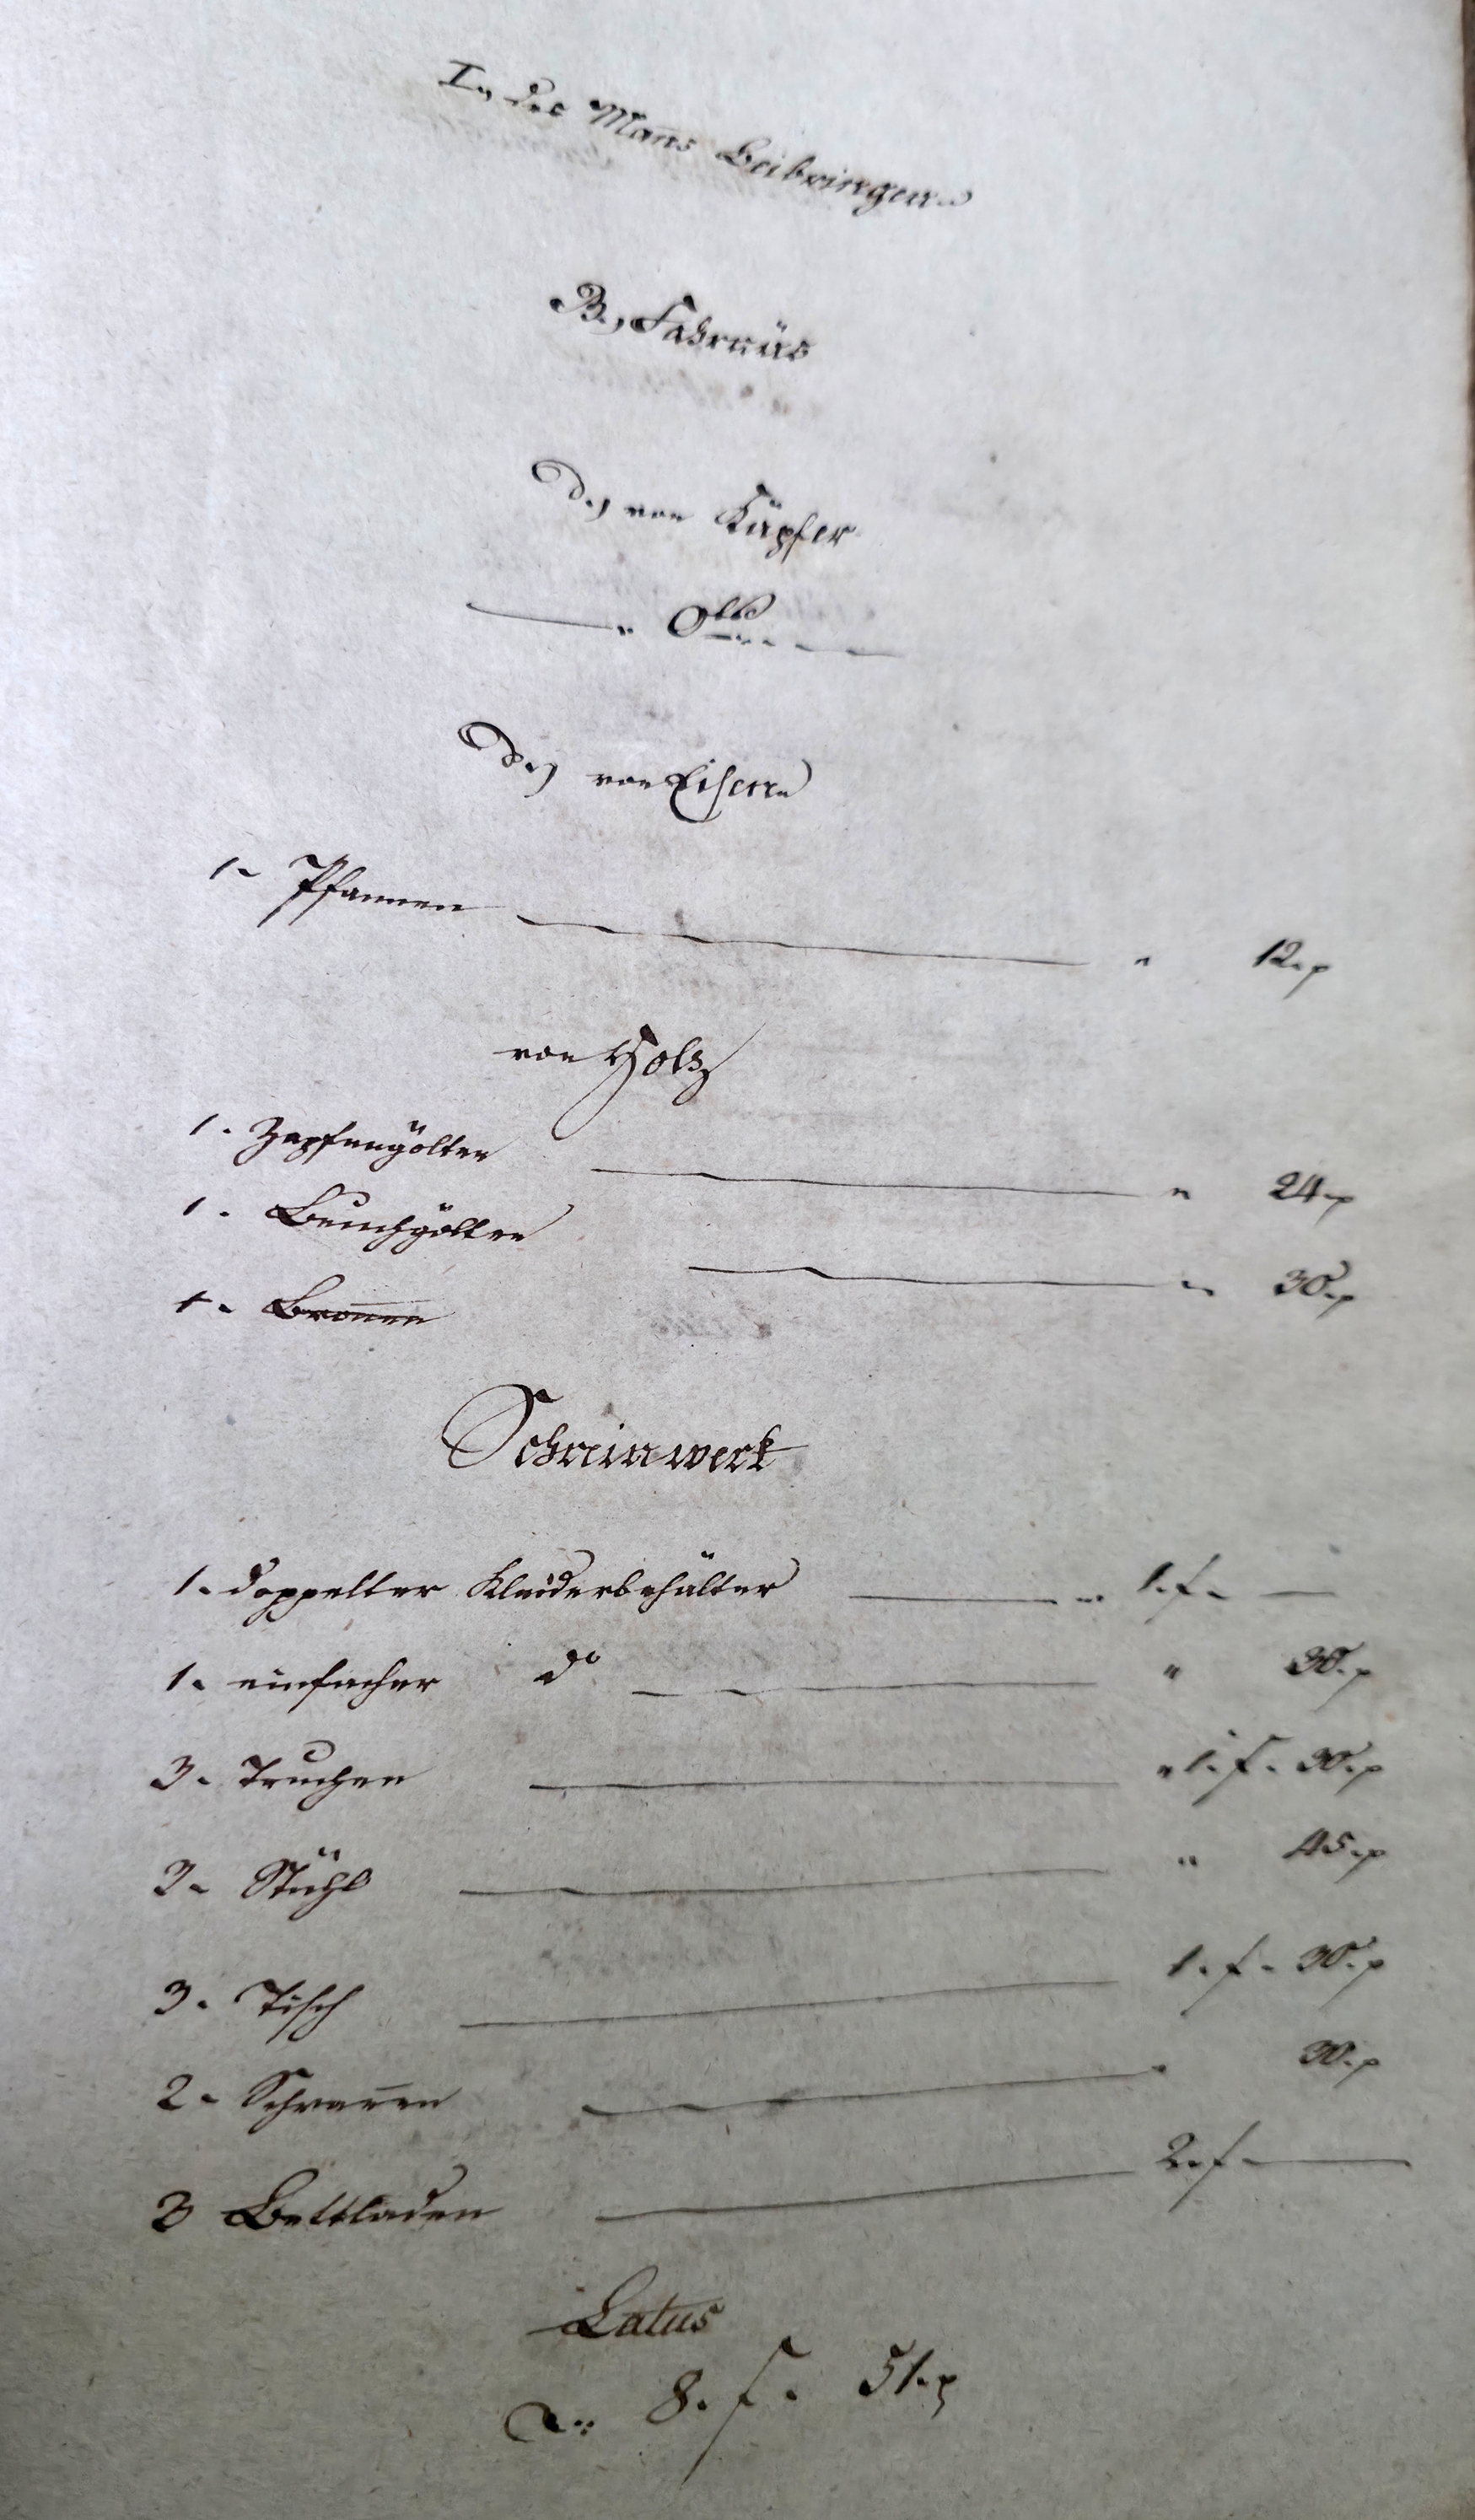 In des Mañs Beibringen
B., Fahrnüs
D., von Küpfer
D., von Eisern
1- Pfannen — „ 12. x
von Holz
1. Zapfengölten — „ 24 x
1. Bauchgölten — „ 30. x
Schreinwerk
1. doppelter Kleiderbehälter — „ 1. f. —
1. einfacher do — „ 30. x
3. Truchen — „ 1. f. 30. x
3. Stühl — „ 45. x
3. Tisch — 1. f. 30. x
2. Schrar̄en — „ 30. x
3 Bettladen — 2. f. —
Latus
8. f. 51. x